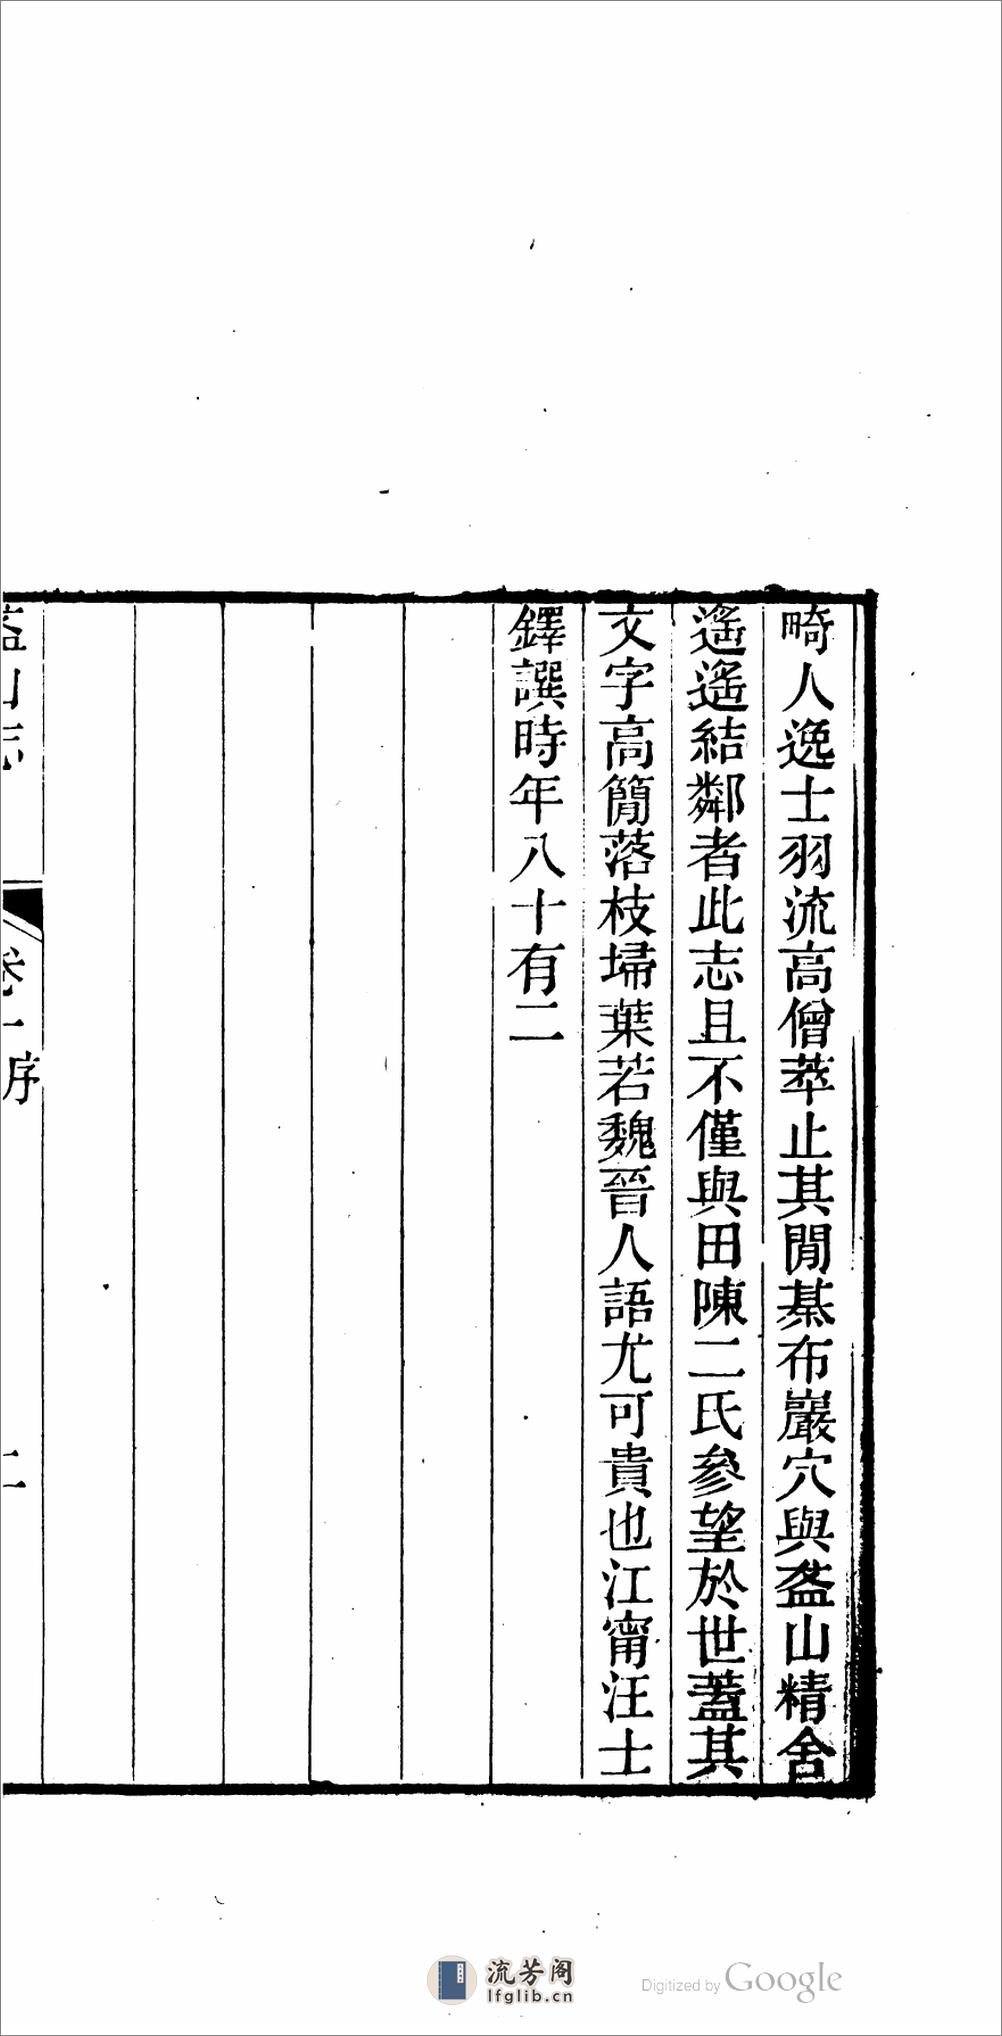 畸人逸士羽流高僧萃止其閒棊布巖穴與盋山精舍
遙遙結鄰者此志且不僅與田陳二氏參望於世蓋其
文字高簡落枝埽葉若魏晉人語尤可貴也江甯汪士
鐸譔時年八十有二
盋山志 卷一序 二
流芳阁
lfglib.cn
Digitized by Google